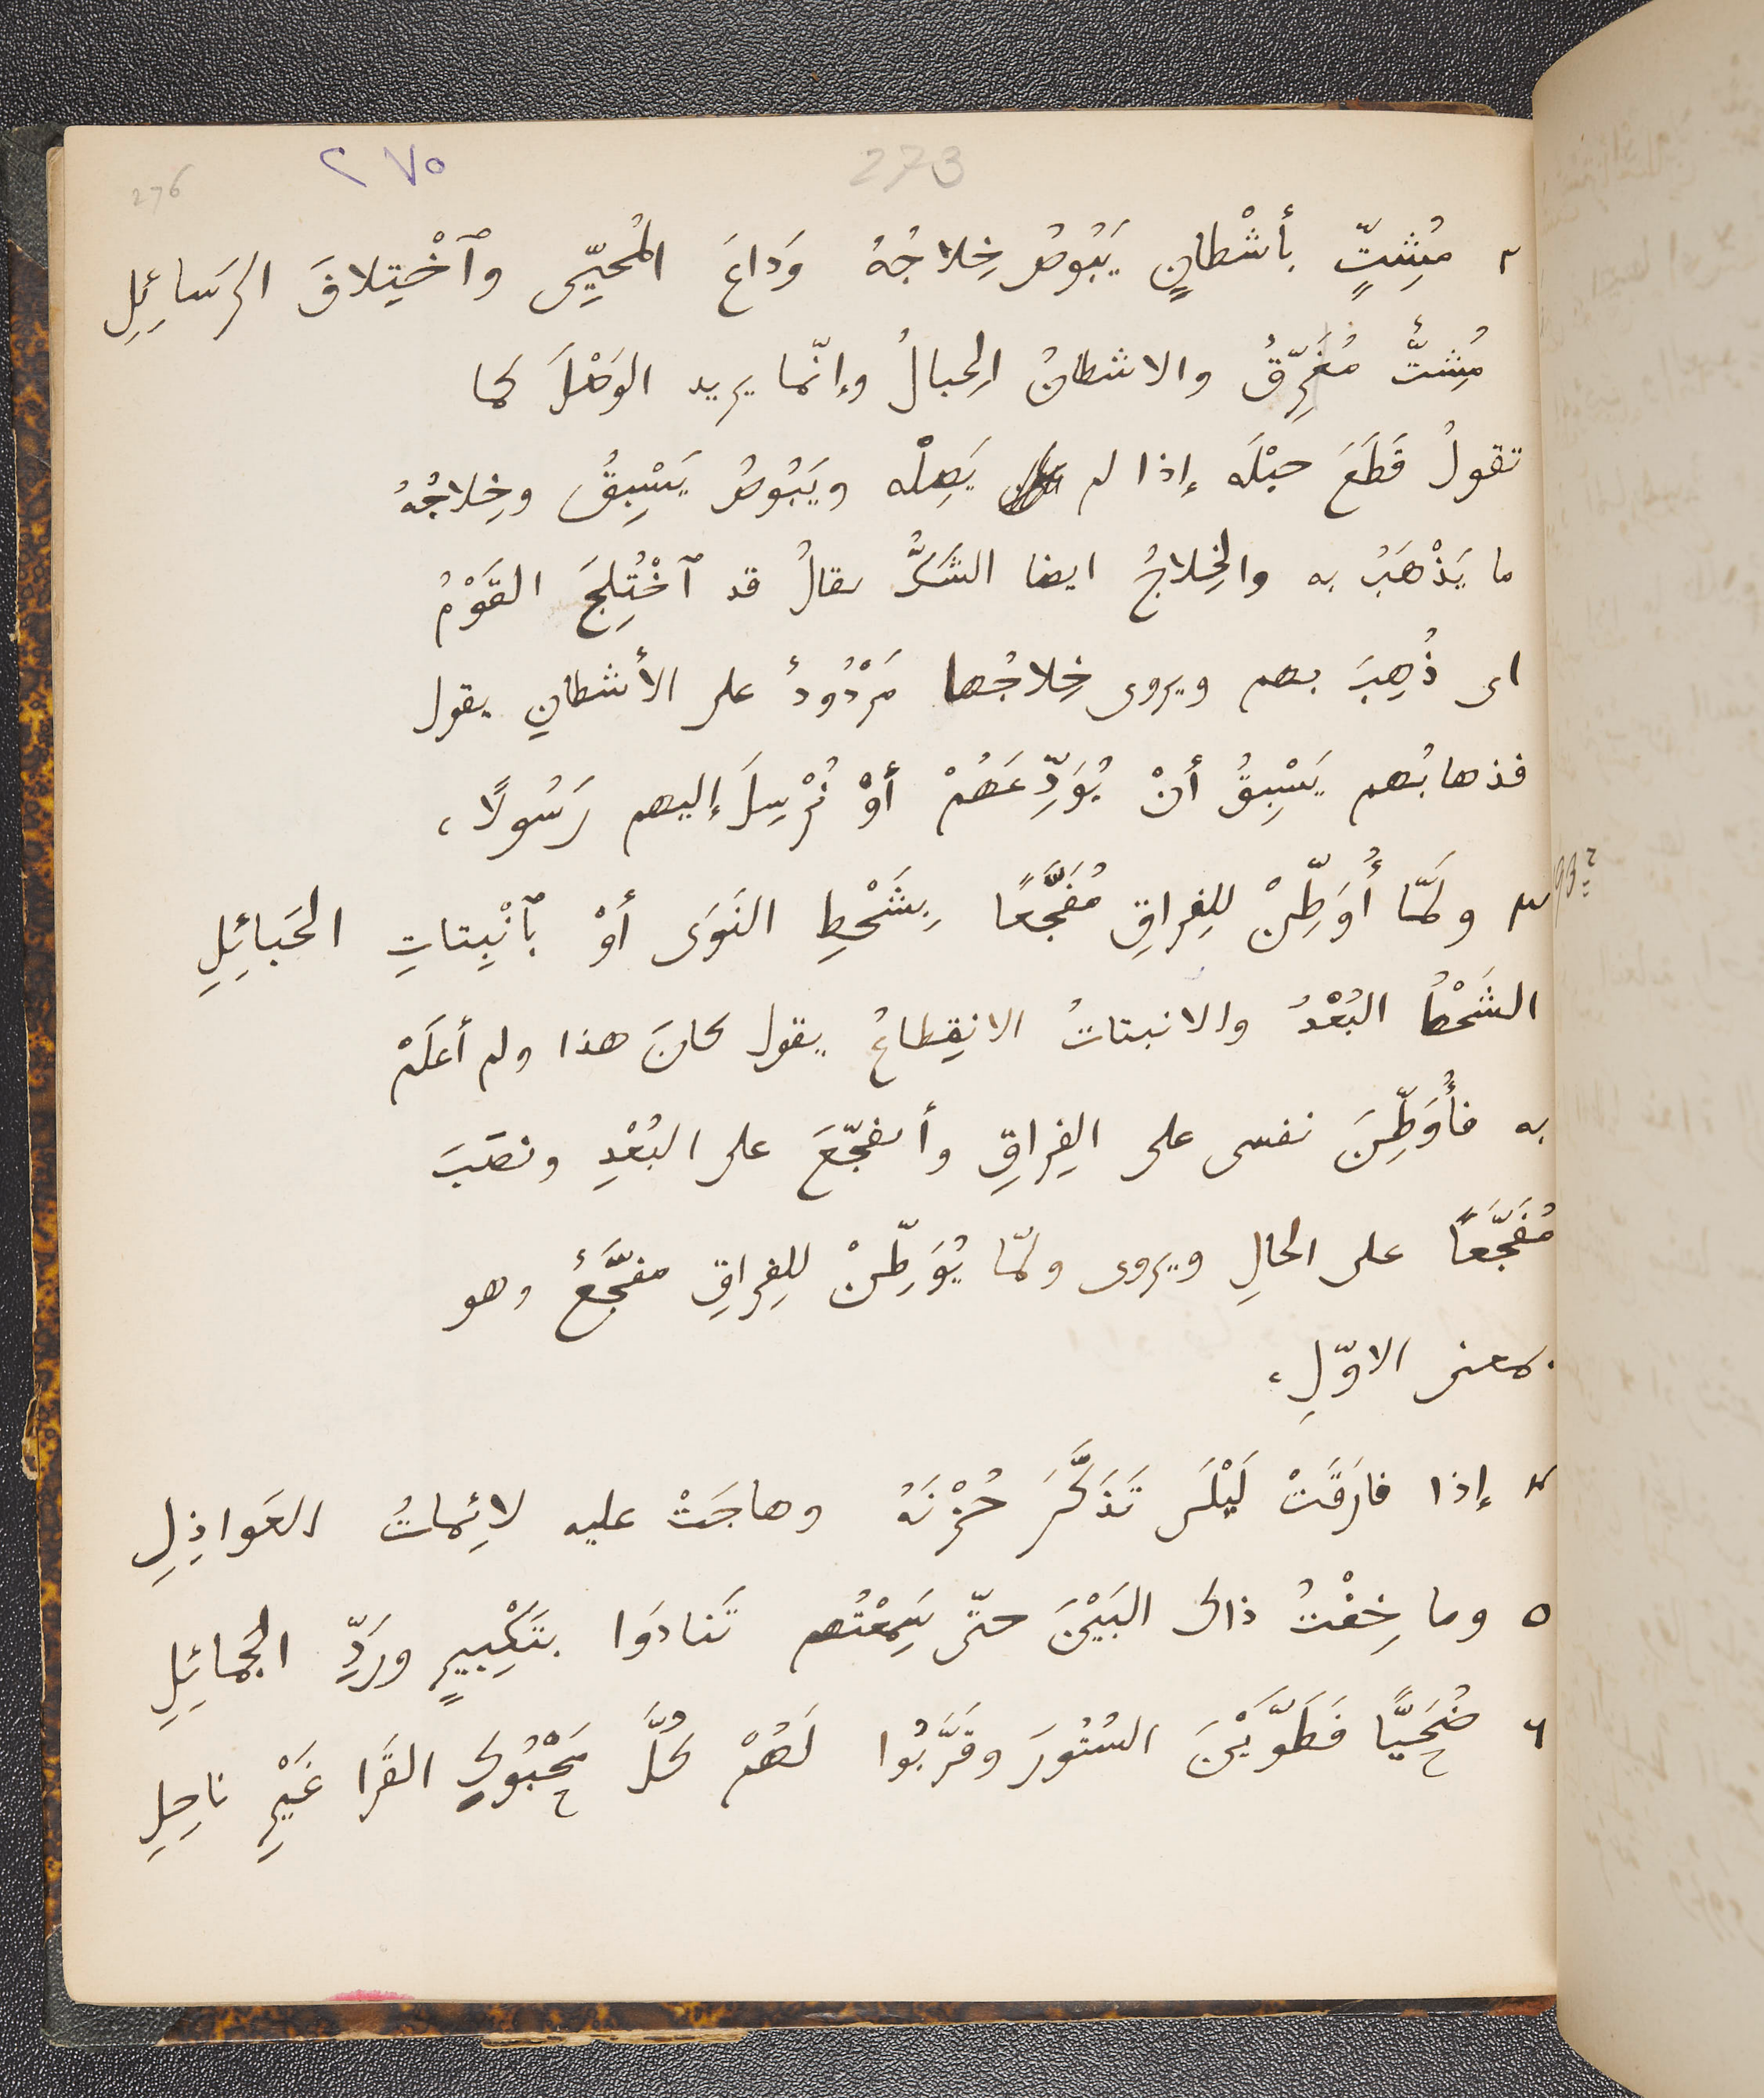 276
٢٧٥
273
٢ مُشِتٍّ بأشْطانٍ يَبُوصُ خِلاجُهُ وَداعَ المُحَيِّى وٱخْتِلافَ الرَسائِلِ
مُشِتٌّ مُفَرِّقٌ والاشطانُ الحِبالُ وإنّما يريد الوَصْلَ كما
تقولُ قَطَعَ حبْلَه إذا لم يَصِلْه ويَبُوصُ يَسْبِقُ وخِلاجُهُ
ما يَذْهَبُ به والخِلاجُ ايضا الشَكُّ يقالُ قد ٱخْتُلِجَ القَوْمُ
اى ذُهِبَ بهم ويروى خِلاجُها مَرْدُودٌ على الأشطانِ يقول
فذهابُهم يَسْبِقُ أنْ يُوَدِّعَهُمْ أوْ نُرْسِلَ إليهم رَسُولًا،
193
٣ ولَمّا أُوَطِّنْ للفِراقِ مُفَجَّعًا بِشَحْطِ النَوَى أوْ بٱنْبِتاتِ الحَبائِلِ
الشَحْطُ البُعْدُ والانبتاتُ الانقِطاعُ يقول كانَ هذا ولم أعلَمْ
به فأُوَطِّنَ نفسى على الفِراقِ وأتفجّعَ على البُعْدِ ونصَبَ
مُفَجَّعًا على الحالِ ويروى ولمّا يُوَطِّنْ للفِراقِ مفجَّعٌ وهو
بمعنى الاوّلِ،
٤ إذا فارَقَتْ لَيْلَى تَذَكَّرَ حُزْنَهُ وهاجَتْ عليه لائِماتُ العَواذِلِ
٥ وما خِفْتُ ذاك البَيْنَ حتّى سَمِعْتُهم تَنادَوا بتَكْبِيرٍ ورَدِّ الجَمائِلِ
٦ ضُحَيًّا فَطَوَّيْنَ السُتُورَ وقَرَّبُوا لَهُمْ كُلَّ مَحْبُوكِ القَرَا غَيْرِ ناحِلِ